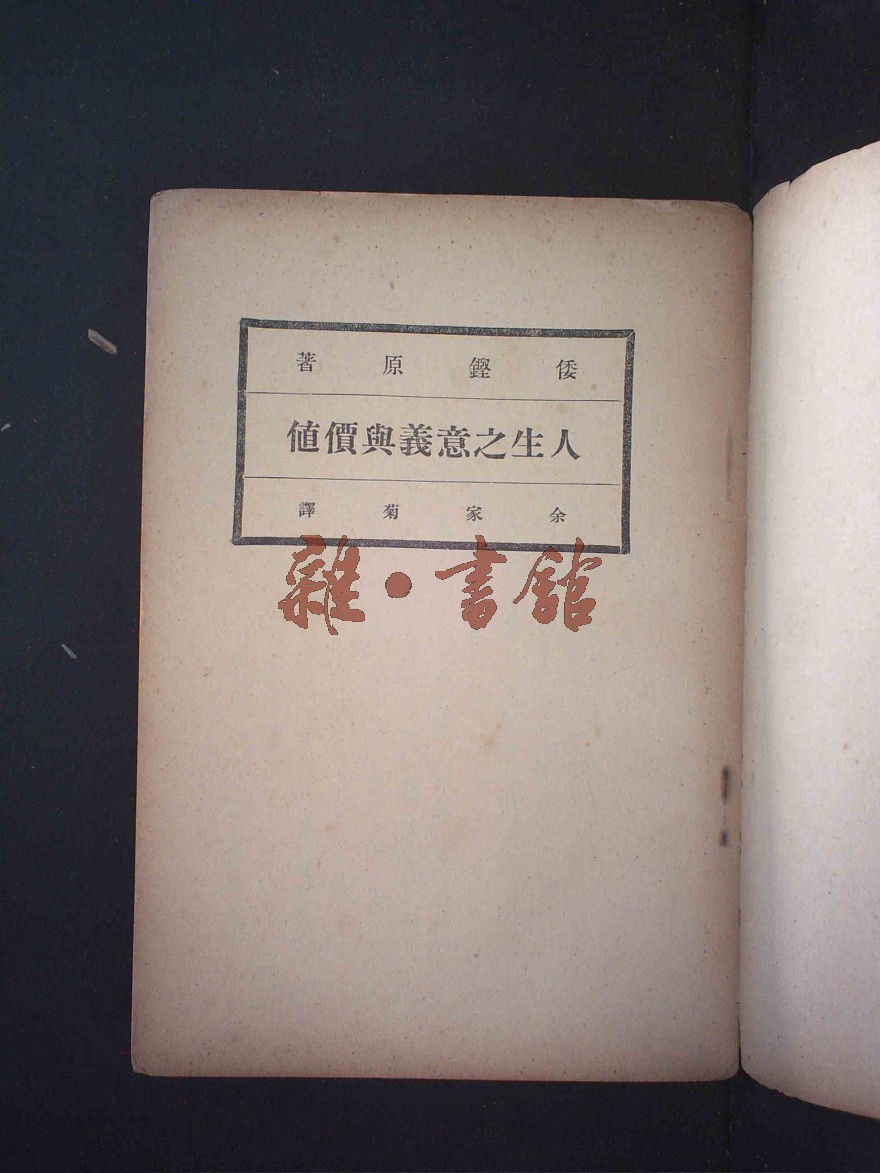 倭鏗原著
人生之意義與價值
余家菊譯
雜·書館